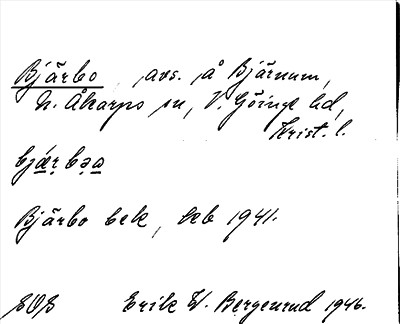 Bjärbo, avs. å Bjärnum,
N. Åkarps sn, V. Göinge hd,
Krist. l.
bjærbəə
Bjärbo bek, seb 1941.
Erik W. Bergenrud 1946.